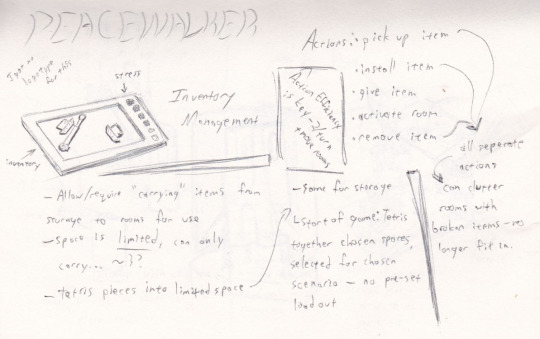 PEACEWALKER
logotype
for this
stress
inventory
Inventory
Management
- Allow/require "carrying" items from
storage to rooms for use
- Space is limited, can only
carry... ~3?
- tetris pieces into limited space
Action Efficiency
is key - 2/turn
+ move rooms
- Same for storage
start of game: Tetris
together chosen spares,
selected for chosen
scenario - no pre-set
loadout
Actions: • pick up item
• install item
• give item
• activate room
• remove item
all separate
actions
can clutter
rooms with
broken items - no
longer fit in.